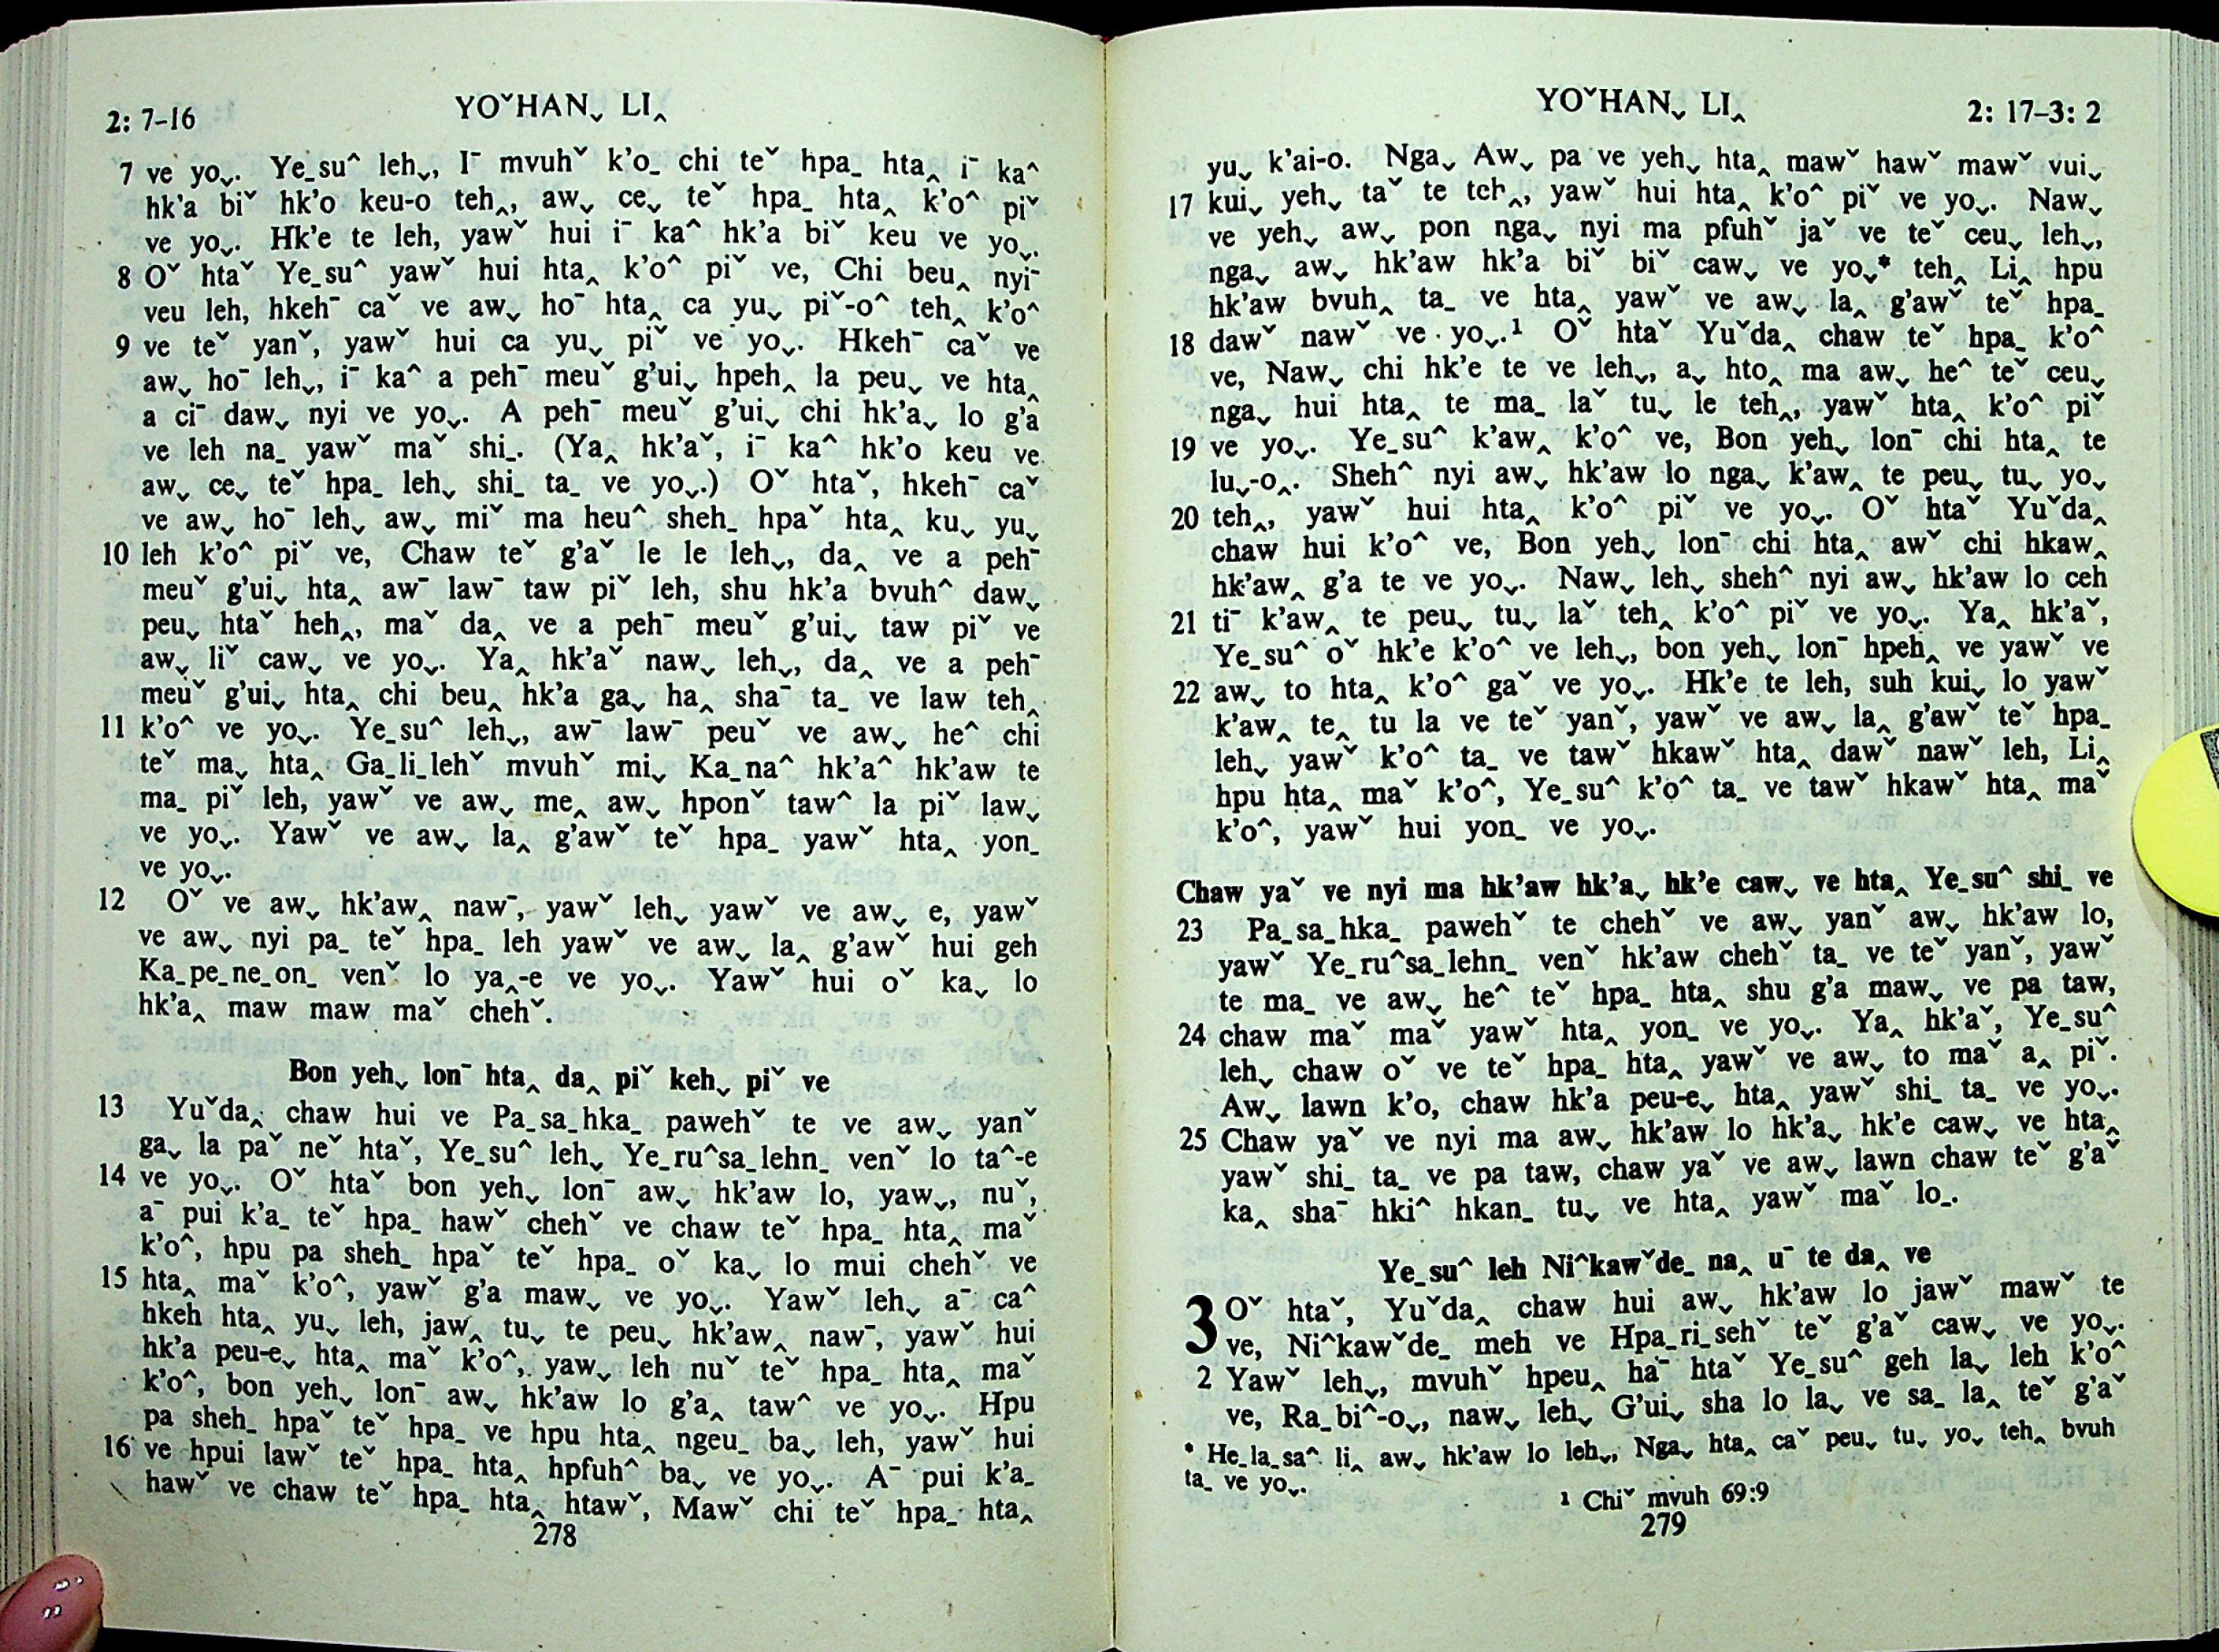 2: 7–16
YOˇHANˬ LI‸
7 ve yoˬ. Ye_su^ lehˬ, Iˉ mvuhˇ k'o_ chi teˇ hpa_ hta‸ iˉ ka^
hk'a biˇ hk'o keu-o teh‸, awˬ ceˬ teˇ hpa_ hta‸ k'o^ piˇ
ve yoˬ. Hk'e te leh, yawˇ hui iˉ ka^ hk'a biˇ keu ve yoˬ.
8 Oˇ htaˇ Ye_su^ yawˇ hui hta‸ k'o^ piˇ ve, Chi beu‸ nyiˉ
veu leh, hkehˉ caˇ ve awˬ hoˉ hta‸ ca yuˬ piˇ-o^ teh‸ k'o^
9 ve teˇ yanˇ, yawˇ hui ca yuˬ piˇ ve yoˬ. Hkehˉ caˇ ve
awˬ hoˉ lehˬ, iˉ ka^ a pehˉ meuˇ g'uiˬ hpeh‸ la peuˬ ve hta‸
a ciˉ dawˬ nyi ve yoˬ. A pehˉ meuˇ g'uiˬ chi hk'aˬ lo g'a
ve leh na_ yawˇ maˇ shi_. (Ya‸ hk'aˇ, iˉ ka^ hk'o keu ve
awˬ ceˬ teˇ hpa_ lehˬ shi_ ta_ ve yoˬ.) Oˇ htaˇ, hkehˉ caˇ
ve awˬ hoˉ lehˬ awˬ miˇ ma heu^ sheh_ hpaˇ hta‸ kuˬ yuˬ
10 leh k'o^ piˇ ve, Chaw teˇ g'aˇ le le lehˬ, da‸ ve a pehˉ
meuˇ g'uiˬ hta‸ awˉ lawˉ taw piˇ leh, shu hk'a bvuh^ dawˬ
peuˬ htaˇ heh‸, maˇ da‸ ve a pehˉ meuˇ g'uiˬ taw piˇ ve
awˬ liˇ cawˬ ve yoˬ. Ya‸ hk'aˇ nawˬ lehˬ, da‸ ve a pehˉ
meuˇ g'uiˬ hta‸ chi beu‸ hk'a gaˬ ha‸ shaˉ ta_ ve law teh‸
11 k'o^ ve yoˬ. Ye_su^ lehˬ, awˉ lawˉ peuˇ ve awˬ he^ chi
teˇ maˬ hta‸ Ga_li_lehˇ mvuhˇ miˬ Ka_na^ hk'a^ hk'aw te
ma_ piˇ leh, yawˇ ve awˬ me‸ awˬ hponˇ taw^ la piˇ lawˬ
ve yoˬ. Yawˇ ve awˬ la‸ g'awˇ teˇ hpa_ yawˇ hta‸ yon_
ve yoˬ.
12 Oˇ ve awˬ hk'aw‸ nawˉ, yawˇ lehˬ yawˇ ve awˬ e, yawˇ
ve awˬ nyi pa_ teˇ hpa_ leh yawˇ ve awˬ la‸ g'awˇ hui geh
Ka_pe_ne_on_ venˇ lo ya‸-e ve yoˬ. Yawˇ hui oˇ kaˬ lo
hk'a‸ maw maw maˇ chehˇ.
Bon yehˬ lonˉ hta‸ da‸ piˇ kehˬ piˇ ve
13 Yuˇda‸ chaw hui ve Pa_sa_hka_ pawehˇ te ve awˬ yanˇ
gaˬ la paˇ neˇ htaˇ, Ye_su^ lehˬ Ye_ru^sa_lehn_ venˇ lo ta^-e
14 ve yoˬ. Oˇ htaˇ bon yehˬ lonˉ awˬ hk'aw lo, yawˬ, nuˇ,
aˉ pui k'a_ teˇ hpa_ hawˇ chehˇ ve chaw teˇ hpa_ hta‸ maˇ
k'o^, hpu pa sheh_ hpaˇ teˇ hpa_ oˇ kaˬ lo mui chehˇ ve
15 hta‸ maˇ k'o^, yawˇ g'a mawˬ ve yoˬ. Yawˇ lehˬ aˉ ca^
hkeh hta‸ yuˬ leh, jaw‸ tuˬ te peuˬ hk'aw‸ nawˉ, yawˇ hui
hk'a peu-eˬ hta‸ maˇ k'o^, yawˬ leh nuˇ teˇ hpa_ hta‸ maˇ
k'o^, bon yehˬ lonˉ awˬ hk'aw lo g'a‸ taw^ ve yoˬ. Hpu
pa sheh_ hpaˇ teˇ hpa_ ve hpu hta‸ ngeu_ baˬ leh, yawˇ hui
16 ve hpui lawˇ teˇ hpa_ hta‸ hpfuh^ baˬ ve yoˬ. Aˉ pui k'a_
hawˇ ve chaw teˇ hpa_ hta‸ htawˇ, Mawˇ chi teˇ hpa_ hta‸
278
YOˇHANˬ LI‸
2: 17–3: 2
yuˬ k'ai-o. Ngaˬ Awˬ pa ve yehˬ hta‸ mawˇ hawˇ mawˇ vuiˬ
17 kuiˬ yehˬ taˇ te teh‸, yawˇ hui hta‸ k'o^ piˇ ve yoˬ. Nawˬ
ve yehˬ awˬ pon ngaˬ nyi ma pfuhˇ jaˇ ve teˇ ceuˬ lehˬ,
ngaˬ awˬ hk'aw hk'a biˇ biˇ cawˬ ve yoˬ* teh‸ Li‸ hpu
hk'aw bvuh‸ ta_ ve hta‸ yawˇ ve awˬ la‸ g'awˇ teˇ hpa_
18 dawˇ nawˇ ve yoˬ.¹ Oˇ htaˇ Yuˇda‸ chaw teˇ hpa_ k'o^
ve, Nawˬ chi hk'e te ve lehˬ, aˬ hto‸ ma awˬ he^ teˇ ceuˬ
ngaˬ hui hta‸ te ma_ laˇ tuˬ le teh‸, yawˇ hta‸ k'o^ piˇ
19 ve yoˬ. Ye_su^ k'aw‸ k'o^ ve, Bon yehˬ lonˉ chi hta‸ te
luˬ-o‸. Sheh^ nyi awˬ hk'aw lo ngaˬ k'aw‸ te peuˬ tuˬ yoˬ
20 teh‸, yawˇ hui hta‸ k'o^ piˇ ve yoˬ. Oˇ htaˇ Yuˇda‸
chaw hui k'o^ ve, Bon yehˬ lonˉ chi hta‸ awˇ chi hkaw‸
hk'aw‸ g'a te ve yoˬ. Nawˬ lehˬ sheh^ nyi awˬ hk'aw lo ceh
21 tiˉ k'aw‸ te peuˬ tuˬ laˇ teh‸ k'o^ piˇ ve yoˬ. Ya‸ hk'aˇ,
Ye_su^ oˇ hk'e k'o^ ve lehˬ, bon yehˬ lonˉ hpeh‸ ve yawˇ ve
22 awˬ to hta‸ k'o^ gaˇ ve yoˬ. Hk'e te leh, suh kuiˬ lo yawˇ
k'aw‸ te‸ tu la ve teˇ yanˇ, yawˇ ve awˬ la‸ g'awˇ teˇ hpa_
lehˬ yawˇ k'o^ ta_ ve tawˇ hkawˇ hta‸ dawˇ nawˇ leh, Li‸
hpu hta‸ maˇ k'o^, Ye_su^ k'o^ ta_ ve tawˇ hkawˇ hta‸ maˇ
k'o^, yawˇ hui yon_ ve yoˬ.
Chaw yaˇ ve nyi ma hk'aw hk'aˬ hk'e cawˬ ve hta‸ Ye_su^ shi_ ve
23 Pa_sa_hka_ pawehˇ te chehˇ ve awˬ yanˇ awˬ hk'aw lo,
yawˇ Ye_ru^sa_lehn_ venˇ hk'aw chehˇ ta_ ve teˇ yanˇ, yawˇ
te ma_ ve awˬ he^ teˇ hpa_ hta‸ shu g'a mawˬ ve pa taw,
24 chaw maˇ maˇ yawˇ hta‸ yon_ ve yoˬ. Ya‸ hk'aˇ, Ye_su^
lehˬ chaw oˇ ve teˇ hpa_ hta‸ yawˇ ve awˬ to maˇ a‸ piˇ.
Awˬ lawn k'o, chaw hk'a peu-eˬ hta‸ yawˇ shi_ ta_ ve yoˬ.
25 Chaw yaˇ ve nyi ma awˬ hk'aw lo hk'aˬ hk'e cawˬ ve hta‸
yawˇ shi_ ta_ ve pa taw, chaw yaˇ ve awˬ lawn chaw teˇ g'aˇ
ka‸ shaˉ hki^ hkan_ tuˬ ve hta‸ yawˇ maˇ lo_.
Ye_su^ leh Ni^kawˇde_ na‸ uˉ te da‸ ve
3 Oˇ htaˇ, Yuˇda‸ chaw hui awˬ hk'aw lo jawˇ mawˇ te
ve, Ni^kawˇde_ meh ve Hpa_ri_sehˇ teˇ g'aˇ cawˬ ve yoˬ.
2 Yawˇ lehˬ, mvuhˇ hpeu‸ haˉ htaˇ Ye_su^ geh laˬ leh k'o^
ve, Ra_bi^-oˬ, nawˬ lehˬ G'uiˬ sha lo laˬ ve sa_ la‸ teˇ g'aˇ
* He_la_sa^ li‸ awˬ hk'aw lo lehˬ, Ngaˬ hta‸ caˇ peuˬ tuˬ yoˬ teh‸ bvuh
ta_ ve yoˬ.
¹ Chiˇ mvuh 69:9
279